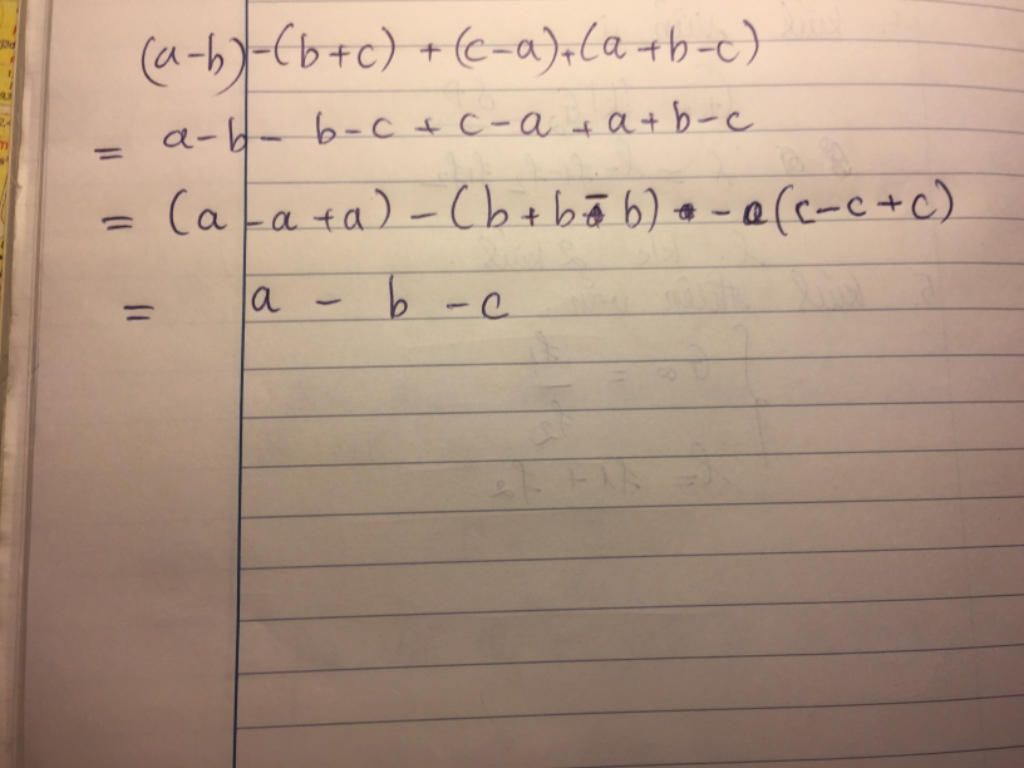 (a-b)-(b+c) + (c-a)+(a+b-c)
= a-b- b-c + c-a + a+b-c
= (a -a +a) - (b+b-b) - (c-c+c)
= a - b -c